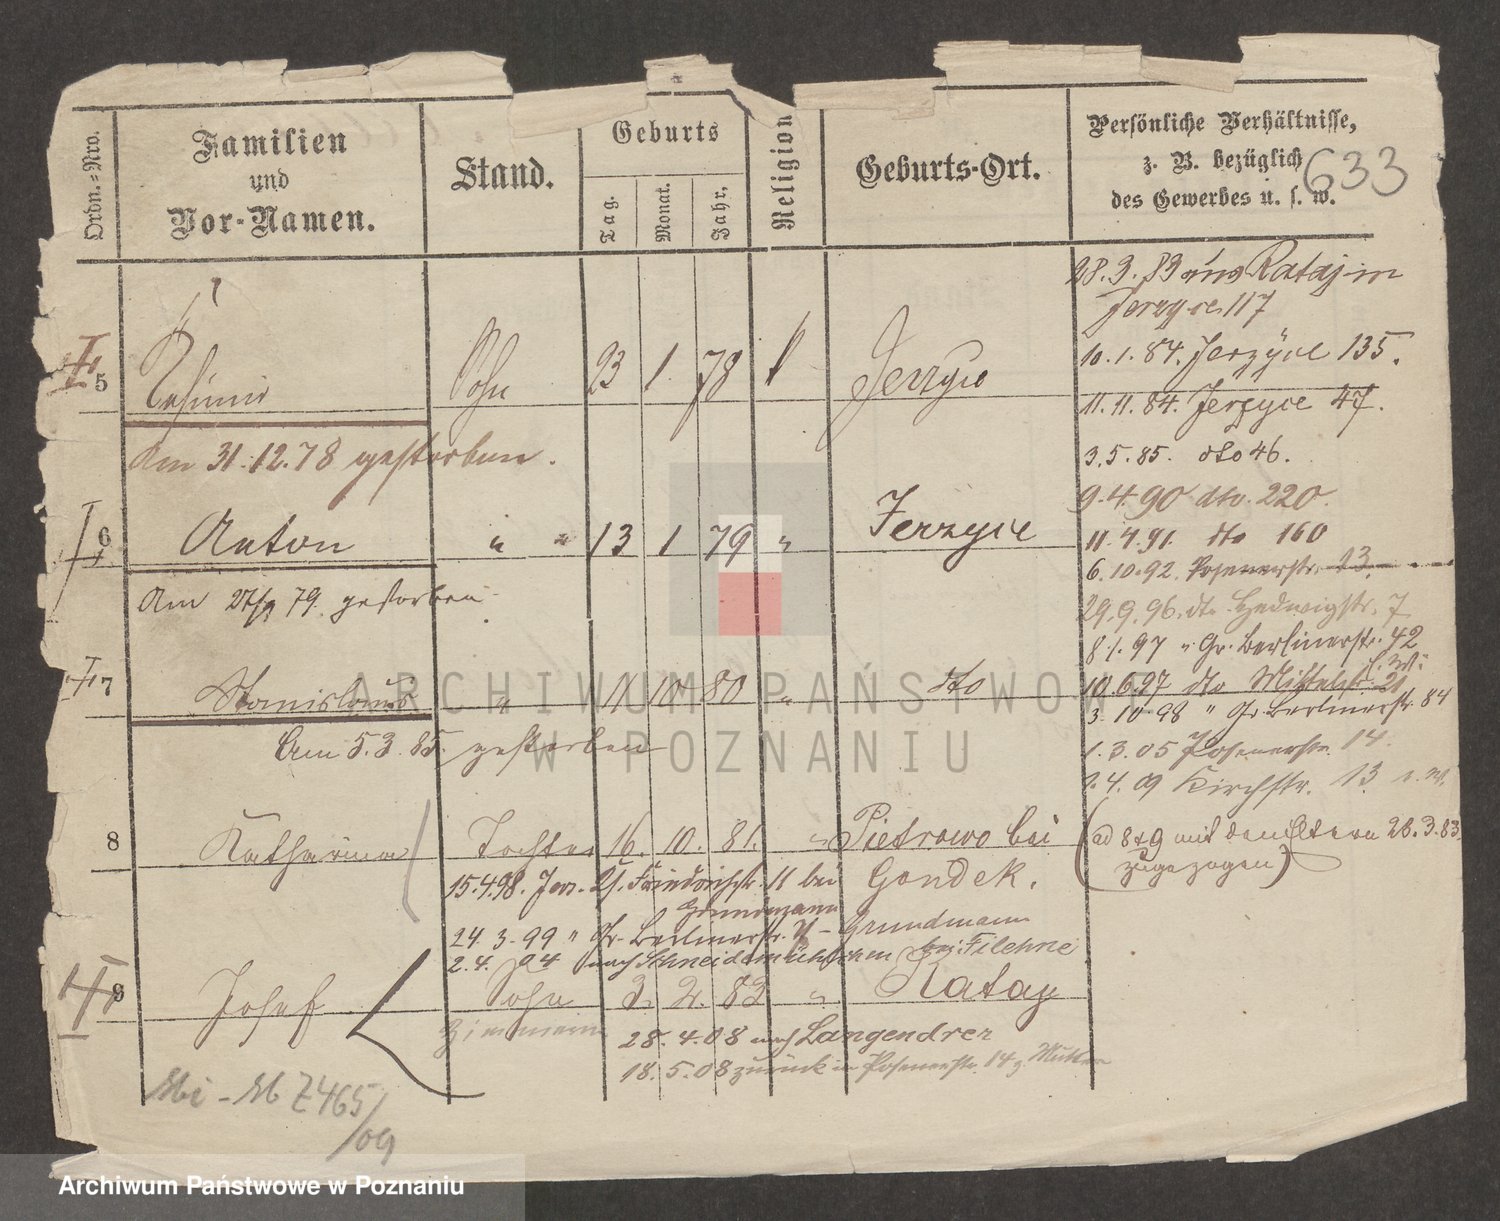 Ordn.-Nro.
Familien
und
Vor-Namen.
Stand.
Geburts
Tag.
Monat.
Jahr.
Religion
Geburts-Ort.
Persönliche Verhältnisse,
z. B. bezüglich
des Gewerbes u. s. w.
633
28.3.83 Rataj in
Jerzyce 117
10.1.84. Jerzyce 135.
5 Sohn 23 1. 78 Jerzyce
11.11.84. Jerzyce 47.
Am 31.12.78 gestorben.
3.5.85. dto 46.
9.4.90 dto. 220.
6 Anton " " 13 1 79 " Jerzyce
11.4.91. dto 160
6.10.92. Posenerstr. 13.
Am 79. gestorben
29.9.96. dto Hedwigstr. 7
8.1.97 " Gr. Berlinerstr. 42
7 Stanislaus " 11 10 80 " dto
10.6.97 dto Mittelstr. 21
3.10.98 " Gr. Berlinerstr. 84
Am 5.3.85. gestorben
1.3.05 Posenerstr. 14.
1.4.09 Kirchstr. 13
8 Katharina Tochter 16. 10. 81. " Pietrowo bei
Gondek.
(ad 8+9 mit den Eltern 28.3.83
zugezogen)
15.4.98. Jerz. Friedrichstr. 11 bei
Grundmann
24.3.99 " Gr. Berlinerstr. - Grundmann
2.4.04 nach Schneidemühlchen bei Filehne
9 Josef Sohn 3. 2. 83 " Rataj
28.4.08 nach Langendreer
18.5.08 zurück in Posenerstr. 14 z. Mutter
Z 465/09
ARCHIWUM PAŃSTWOWE
W POZNANIU
Archiwum Państwowe w Poznaniu